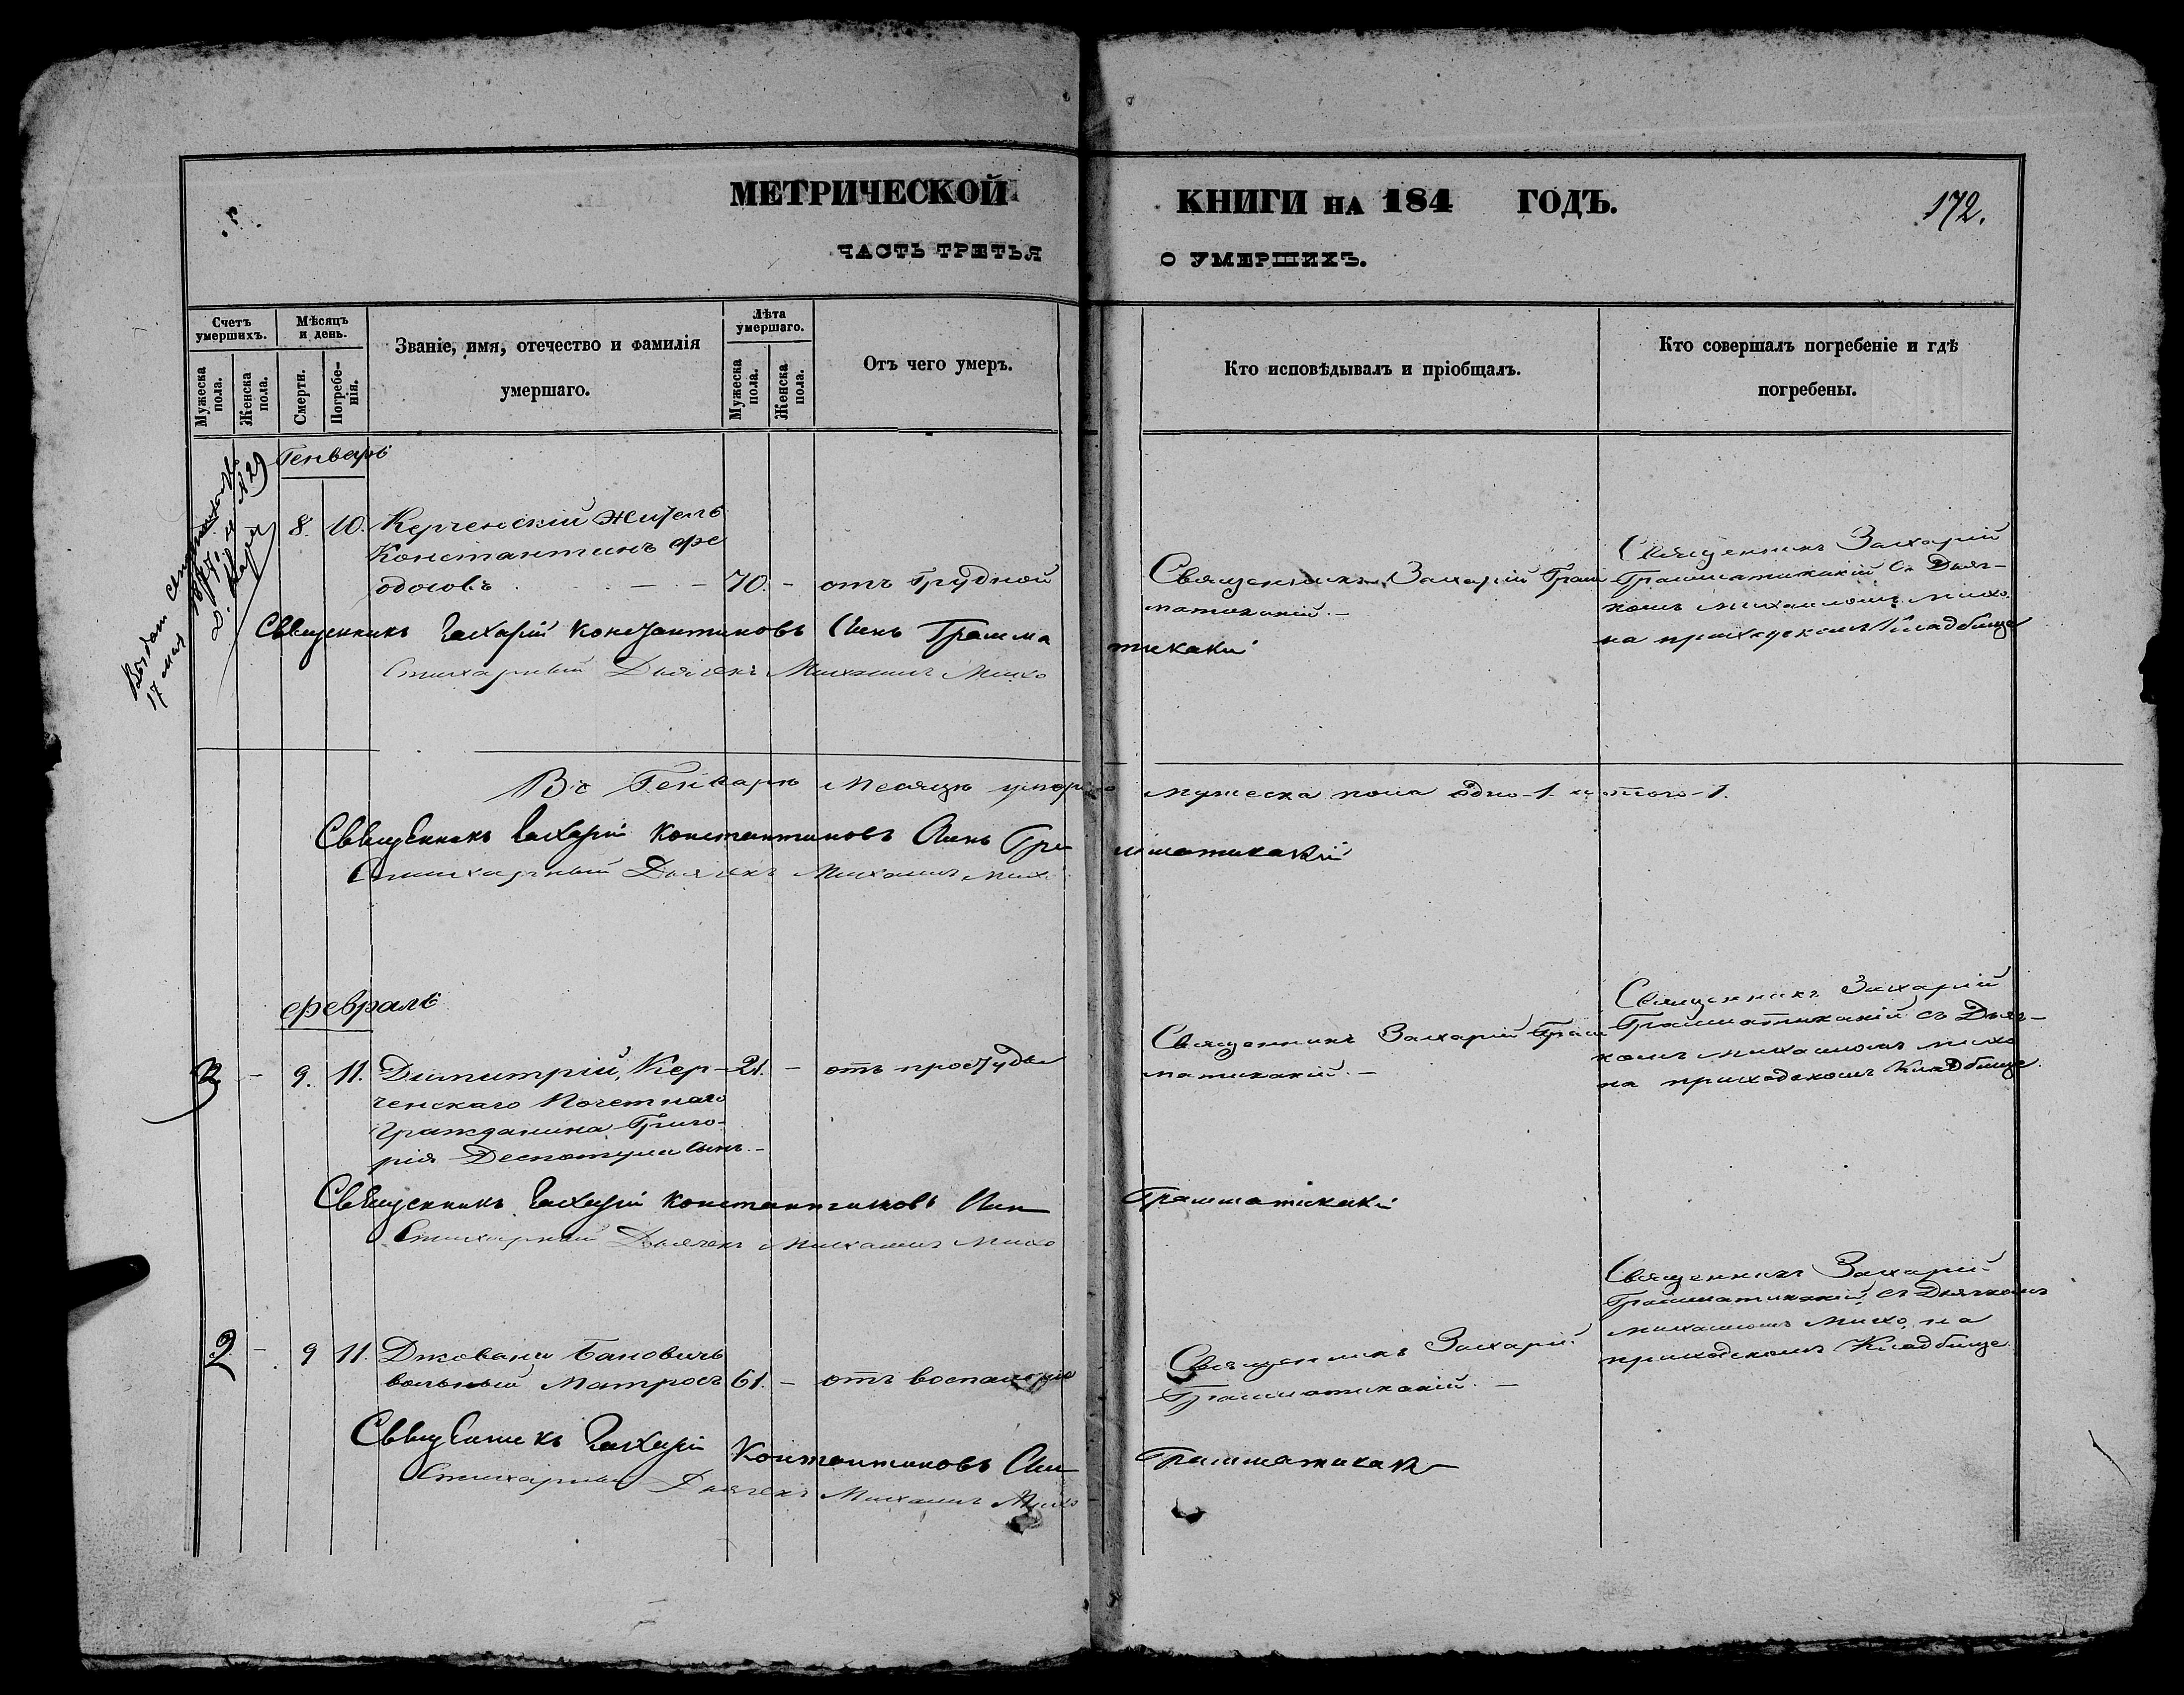 МЕТРИЧЕСКОЙ КНИГИ НА 184 ГОДЪ.
172.
ЧАСТЬ ТРЕТЬЯ О УМЕРШИХЪ.
Счетъ умершихъ.
Мужеска пола.
Женска пола.
Мѣсяцъ и день.
Смерти.
Погребе-
нія.
Званіе, имя, отечество и фамилія
умершаго.
Лѣта умершаго.
Мужеска пола.
Женска пола.
Отъ чего умеръ.
Кто исповѣдывалъ и пріобщалъ.
Кто совершалъ погребеніе и гдѣ
погребены.
17 мая
Генварь
8. 10. Керченскій житель
Константинъ Фе
одосовъ - - 70. - отъ грудной
Священникъ Захарій Грам
матикакій. -
Священникъ Захарій
Грамматикакій съ Дьяч-
комъ Михаиломъ Михо
на приходскомъ Кладбище
Священникъ Захарій Константиновъ Синъ Грамма тикаки
Стихарный Дьячекъ Михаилъ Михо
Въ Генварѣ месяцѣ умерло мужеска пола одно-1. итого-1.
Священникъ Захарій Константиновъ Синъ Гра мматикакій
Стихарный Дьячекъ Михаилъ Михо
Февраль
2 - 9. 11. Димитрій, Кер- 21. - отъ простуды
ченскаго Почетнаго
Гражданина Григо-
рія Деспотули сынъ. -
Священникъ Захарій Грам
матикакій. -
Священникъ Захарій
Грамматикакій съ Дьяч-
комъ Михаиломъ Михо
на приходскомъ Кладбище.
Священникъ Захарій Константиновъ Син Грамматикакі
Стихарный Дьячекъ Михаилъ Михо
2 - 9 11. Джовани Бановичъ
вольный Матросъ 61. - отъ воспаленія
Священникъ Захарій
Грамматикакій. -
Священникъ Захарій
Грамматикакій, съ Дьячкомъ
Михаиломъ Михо, на
приходскомъ Кладбище.
Священникъ Захарій Константиновъ Син Грамматикаки
Стихарный Дьячекъ Михаилъ Михо